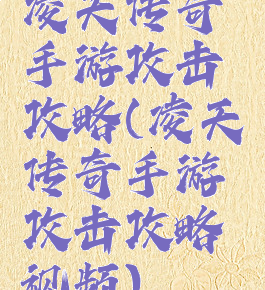 凌天传奇
手游攻击
攻略(凌天
传奇手游
攻击攻略
视频)